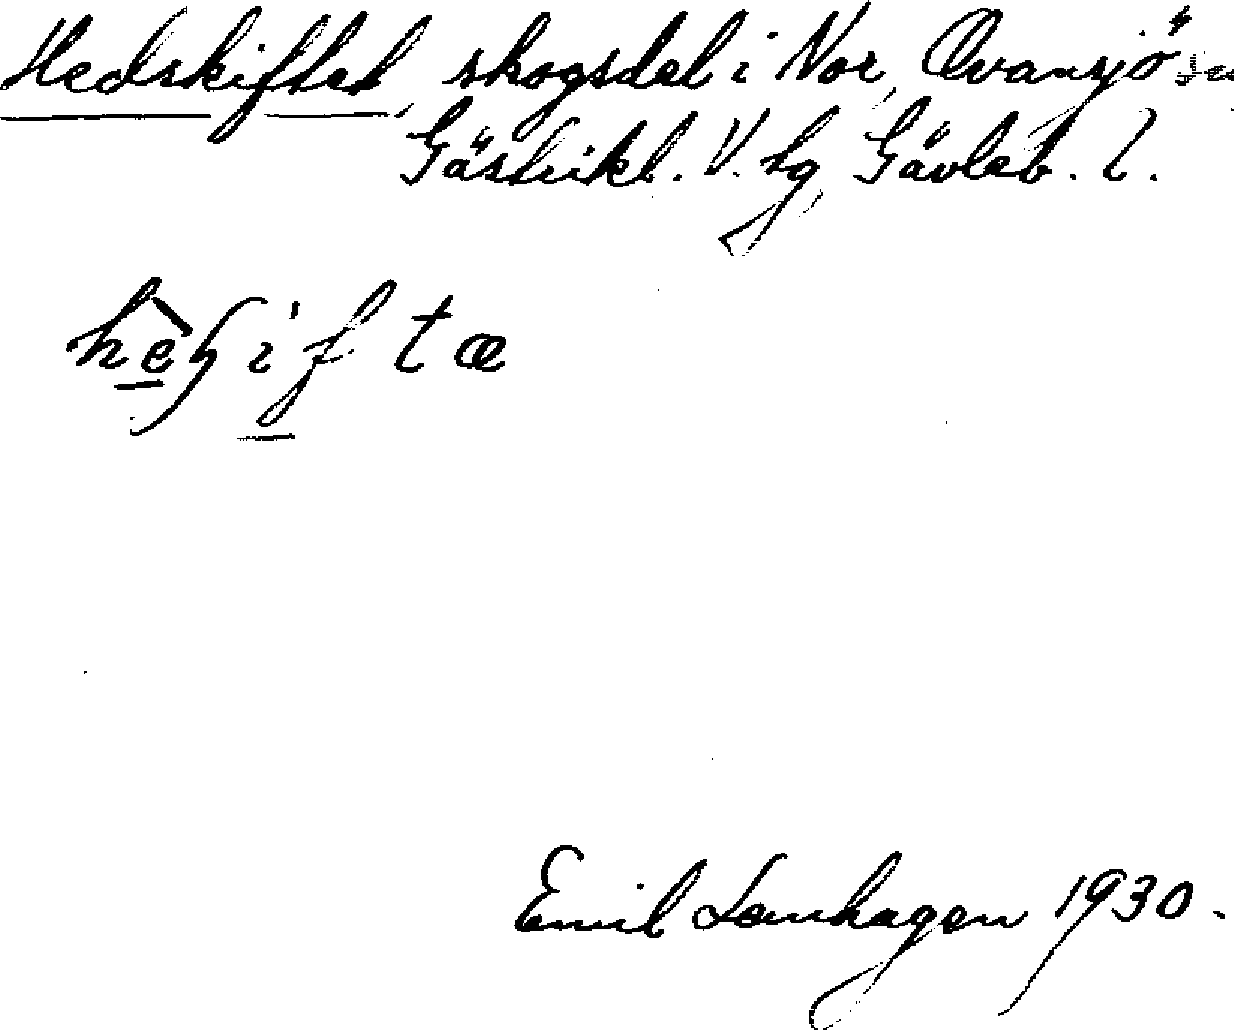 Hedskiftet, skogsdel i Nor, Ovansjö sn
Gästrikl. V. tg, Gävleb. l.
Emil Lenhagen 1930.